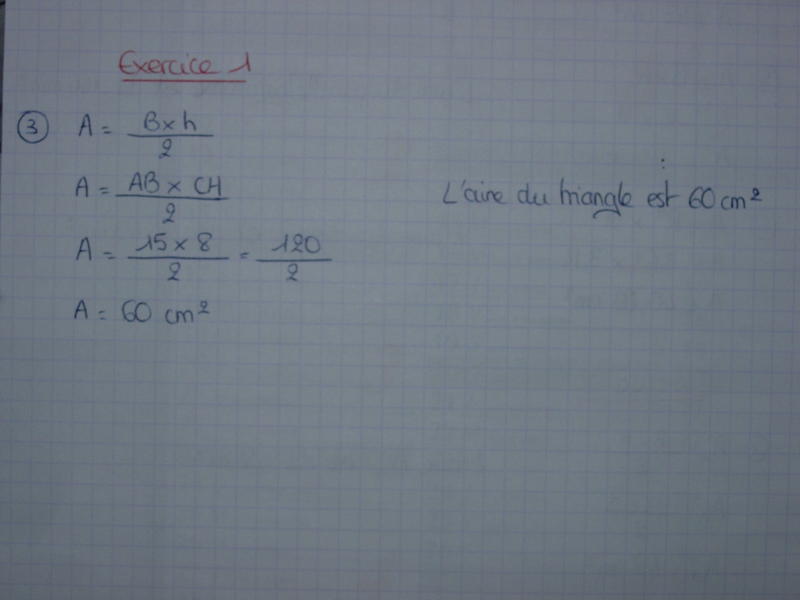 Exercice 1
③ A = B x h / 2
A = AB x CH / 2
A = 15 x 8 / 2 = 120 / 2
A = 60 cm²
L'aire du triangle est 60 cm²